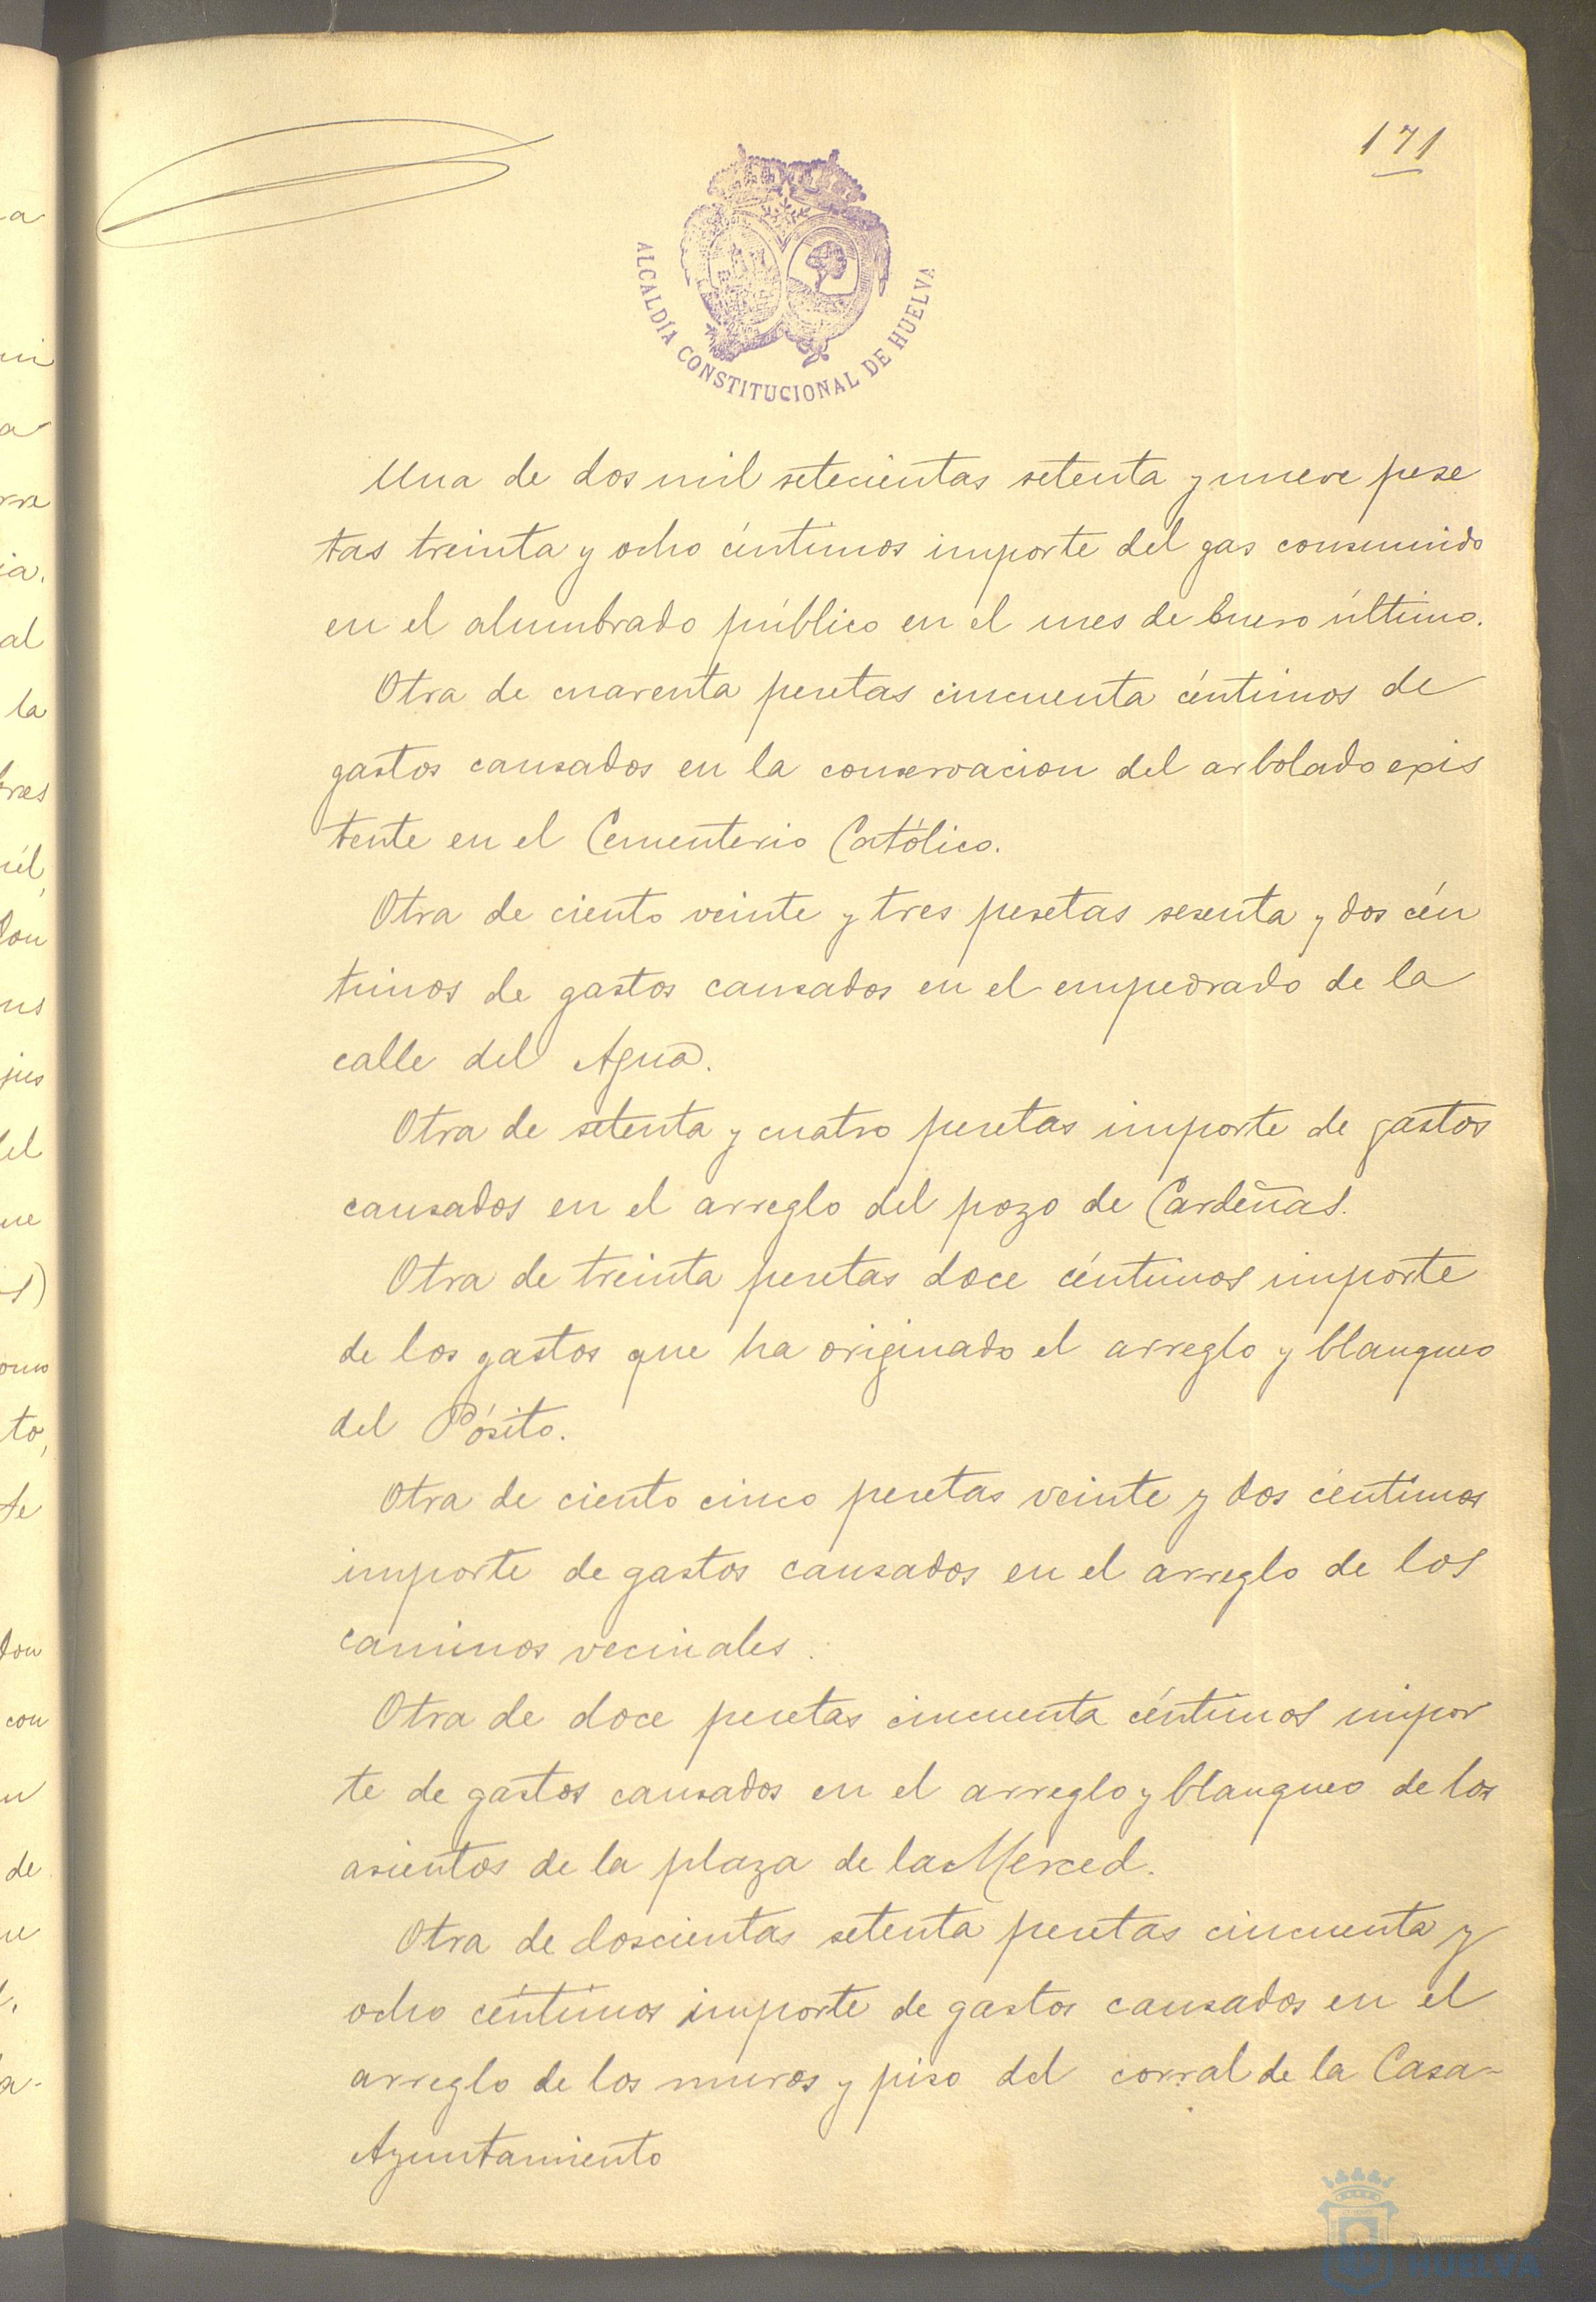 171
ALCALDÍA CONSTITUCIONAL DE HUELVA
Una de dos mil setecientas setenta y nueve pese
tas treinta y ocho céntimos importe del gas consumido
en el alumbrado público en el mes de Enero último.
Otra de cuarenta pesetas cincuenta céntimos de
gastos causados en la conservacion del arbolado exis
tente en el Cementerio Católico.
Otra de ciento veinte y tres pesetas sesenta y dos cén
timos de gastos causados en el empedrado de la
calle del Agua.
Otra de setenta y cuatro pesetas importe de gastos
causados en el arreglo del pozo de Cardeñas.
Otra de treinta pesetas doce céntimos importe
de los gastos que ha originado el arreglo y blanqueo
del Pósito.
Otra de ciento cinco pesetas veinte y dos céntimos
importe de gastos causados en el arreglo de los
caminos vecinales.
Otra de doce pesetas cincuenta céntimos impor
te de gastos causados en el arreglo y blanqueo de los
asientos de la plaza de la Merced.
Otra de doscientas setenta pesetas cincuenta y
ocho céntimos importe de gastos causados en el
arreglo de los muros y piso del corral de la Casa-
Ayuntamiento
HUELVA